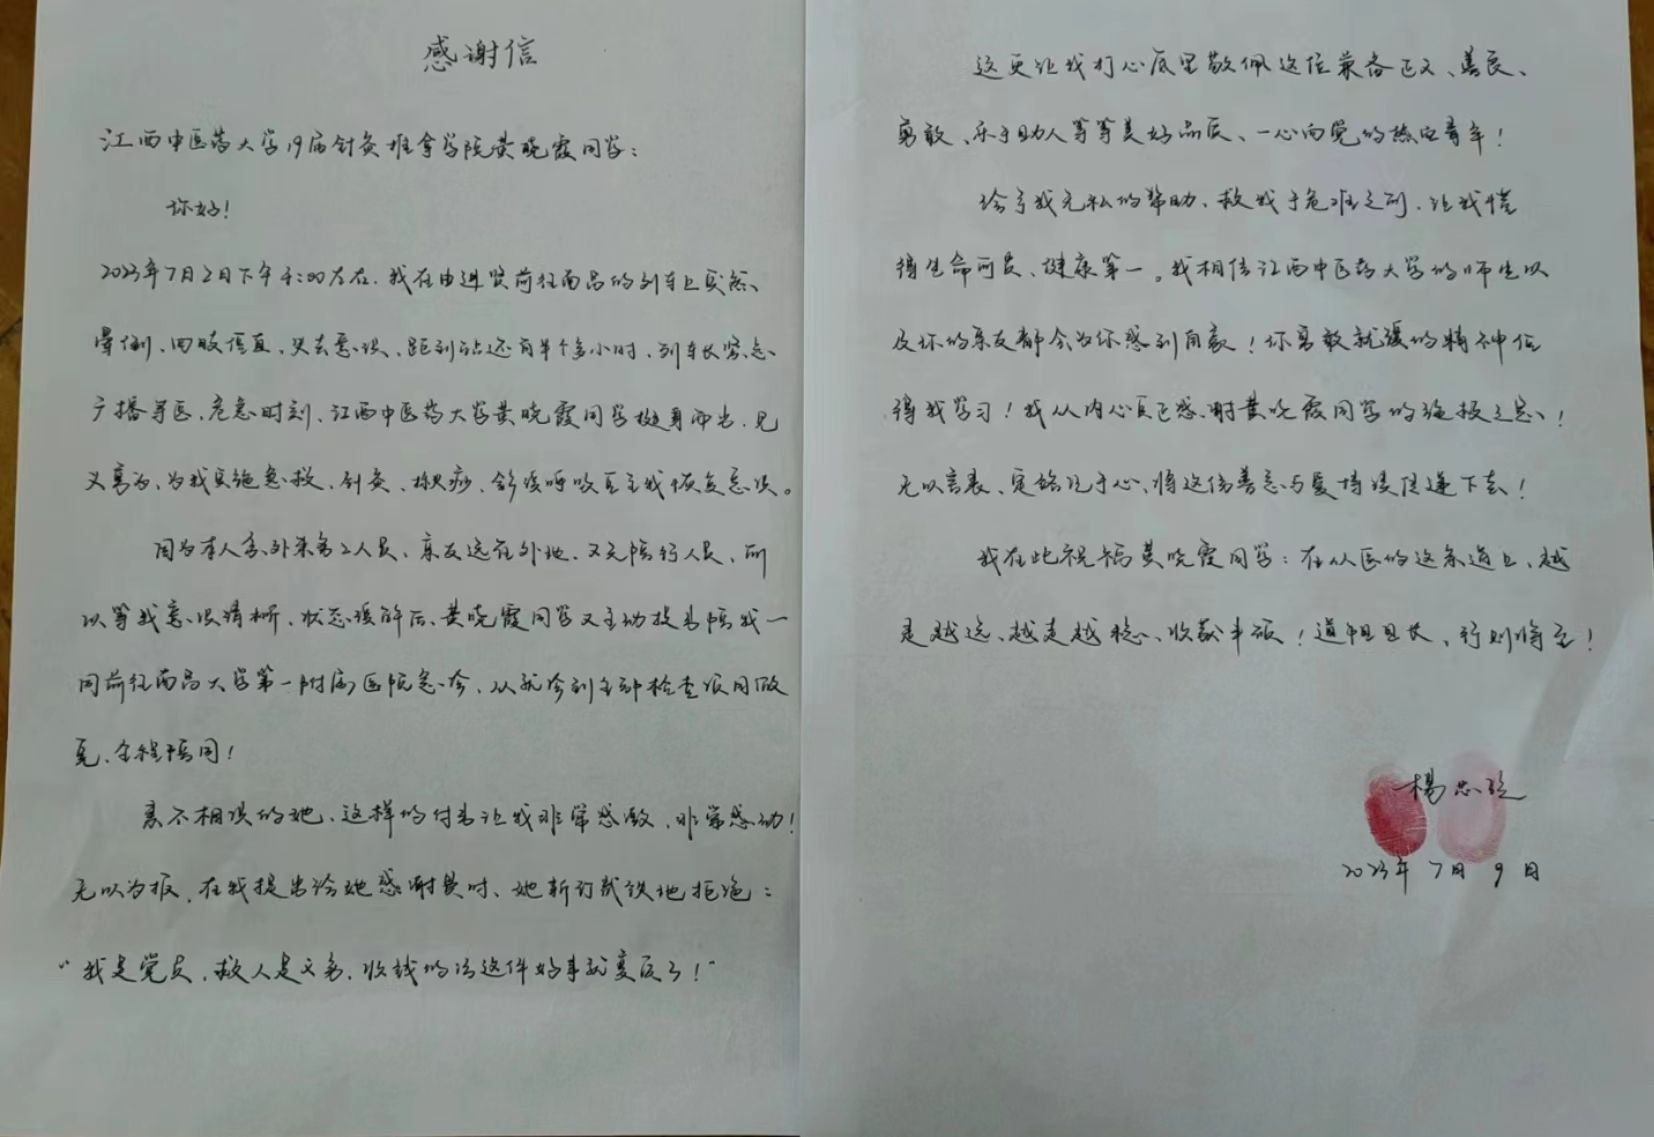 感谢信
江西中医药大学19届针灸推拿学院黄晓霞同学：
你好！
2023年7月2日下午4:00左右，我在由进贤前往南昌的列车上突然
晕倒、四肢僵直、失去意识、距到站还有半个多小时，列车长紧急
广播寻医，危急时刻、江西中医药大学黄晓霞同学挺身而出，见
义勇为，为我实施急救，针灸、揪痧、舒缓呼吸直至我恢复意识。
因为本人系外来务工人员，亲友远在外地，又无陪行人员，所
以等我意识清晰、状态缓解后，黄晓霞同学又主动提出陪我一
同前往南昌大学第一附属医院急诊，从就诊到全部检查项目做
完，全程陪同！
素不相识的她，这样的付出让我非常感激，非常感动！
无以为报，在我提出给她感谢费时，她斩钉截铁地拒绝：
“我是党员，救人是义务，收钱的话这件好事就变质了！”
这更让我打心底里敬佩这位兼备正义、善良、
勇敢、乐于助人等等美好品质、一心向党的热血青年！
给予我无私的帮助、救我于危难之间，让我懂
得生命可贵、健康第一。我相信江西中医药大学的师生以
及你的亲友都会为你感到自豪！你勇敢就援的精神值
得我学习！我从内心真正感谢黄晓霞同学的施援之恩！
无以言表、定铭记于心，将这份善意与爱持续传递下去！
我在此祝福黄晓霞同学：在从医的这条道上，越
走越远、越走越稳、收获丰硕！道阻且长，行则将至！
杨忠
2023年7月9日